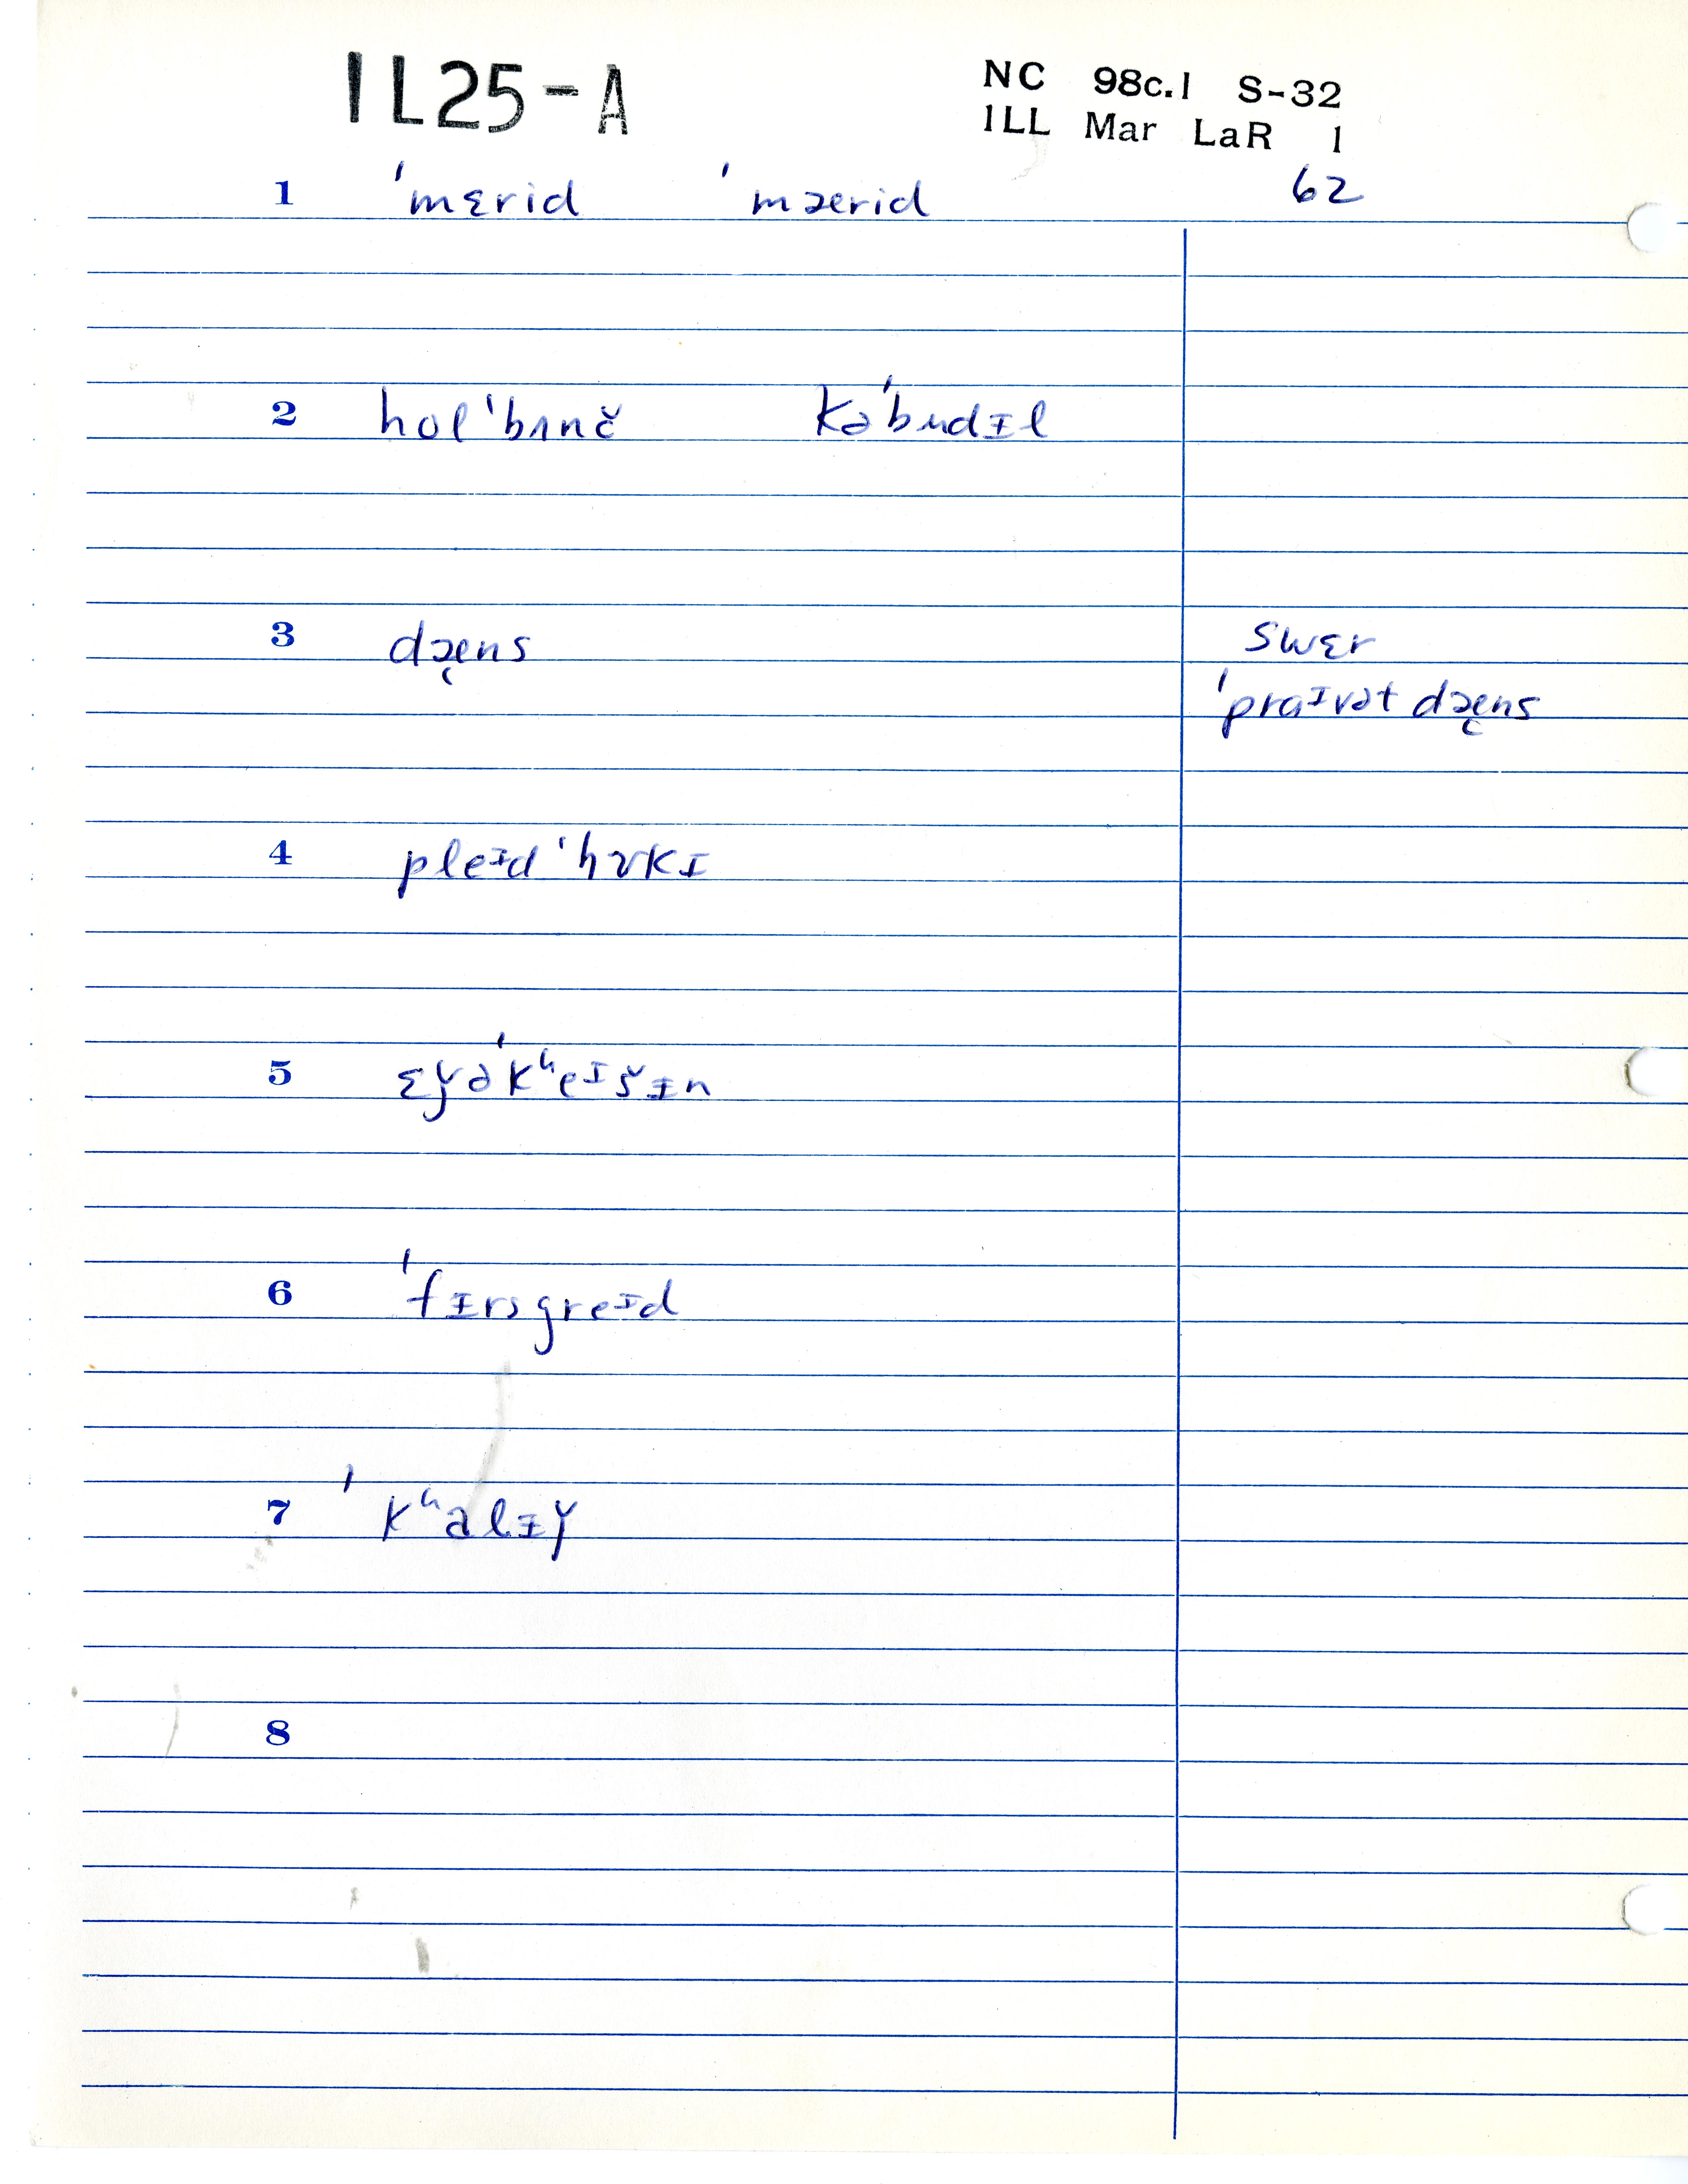 IL25-A
NC 98c.1 S-32
ILL Mar LaR 1
62
1 ˈmɛrid ˈmærid
2 hol ˈbʌnč kəˈbudɪl
3 dæ̨ns swɛr
ˈpraɪvət dæ̨ns
4 pleɪd ˈhʊkɪ
5 ɛǰəˈkʰeɪšɪn
6 ˈfɪrsgreɪd
7 ˈkʰalɪǰ
8